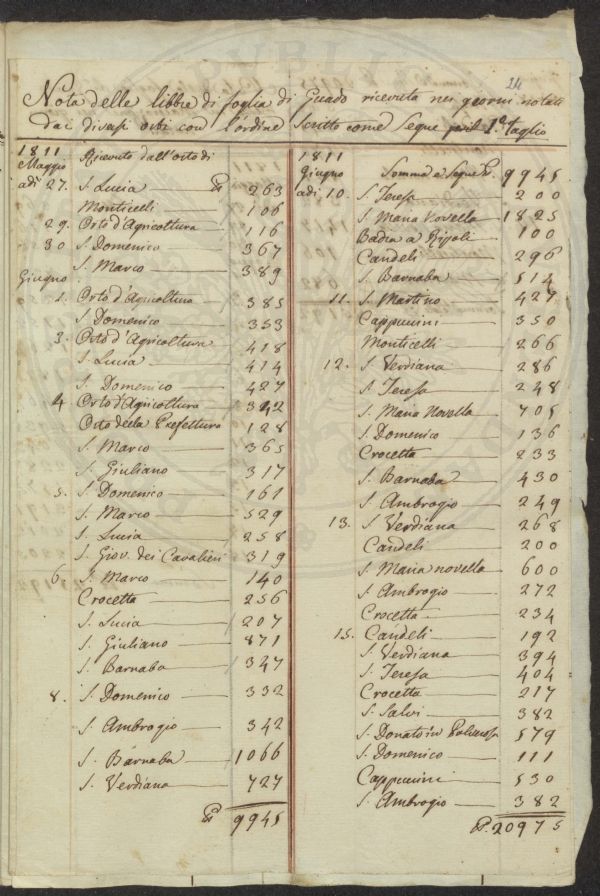 14
Nota delle libbre di foglia di Guado ricevuta nei giorni notati
dai diversi orti con l'ordine scritto come segue per il 1.o taglio
1811
Maggio Ricevuto dall'orto di
adi 27. S. Lucia 263
Monticelli 106
29. Orto d'Agricoltura 116
30 S. Domenico 367
S. Marco 389
Giugno
1. Orto d'Agricoltura 385
S. Domenico 353
3. Orto d'Agricoltura 418
S. Lucia 414
S. Domenico 427
4 Orto d'Agricoltura 342
Orto della Prefettura 128
S. Marco 365
S. Giuliano 317
5. S. Domenico 161
S. Marco 529
S. Lucia 258
S. Giov. dei Cavalieri 319
6. S. Marco 140
Crocetta 256
S. Lucia 207
S. Giuliano 871
S. Barnaba 347
8. S. Domenico 332
S. Ambrogio 342
S. Barnaba 1066
S. Verdiana 727
9945
1811
Giugno Somma e Segue 9945.
adi 10. S. Teresa 200
S. Maria Novella 1825
Badia a Ripoli 100
Candeli 296
S. Barnaba 514
11. S. Martino 427
Cappuccini 350
Monticelli 266
12. S. Verdiana 286
S. Teresa 248
S. Maria Novella 705
S. Domenico 136
Crocetta 233
S. Barnaba 430
S. Ambrogio 249
13. S. Verdiana 268
Candeli 200
S. Maria novella 600
S. Ambrogio 272
Crocetta 234
15. Candeli 192
S. Verdiana 394
S. Teresa 404
Crocetta 217
S. Salvi 382
S. Donato in Polverosa 579
S. Domenico 111
Cappuccini 530
S. Ambrogio 382
20975